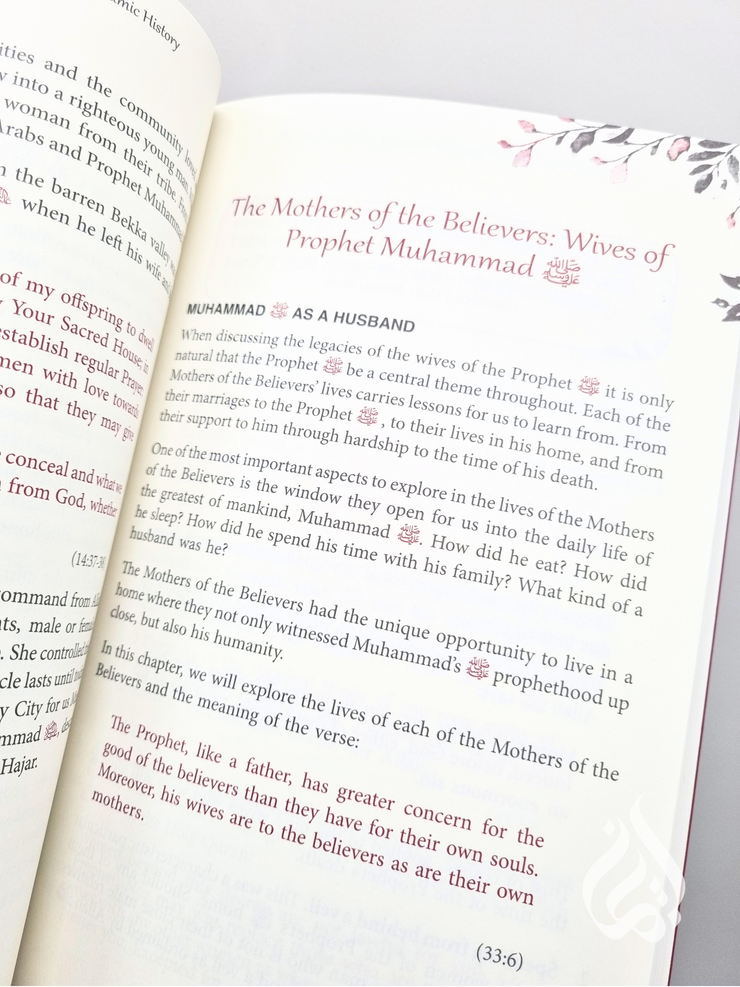 amic History
ities and the community
into a righteous young man
woman from their tribe.
Arabs and Prophet Muhammad
the barren Bekka valley
ﷺ when he left his wife and
of my offspring to dwell
Your Sacred House; in
establish regular Prayer
men with love towards
so that they may give
conceal and what we
from God, whether
(14:37-3
command from
nts, male or
. She controlled
cle lasts until
y City for us
mmad ﷺ, de
Hajar.
The Mothers of the Believers: Wives of
Prophet Muhammad ﷺ
MUHAMMAD ﷺ AS A HUSBAND
When discussing the legacies of the wives of the Prophet ﷺ it is only
natural that the Prophet ﷺ be a central theme throughout. Each of the
Mothers of the Believers’ lives carries lessons for us to learn from. From
their marriages to the Prophet ﷺ, to their lives in his home, and from
their support to him through hardship to the time of his death.
One of the most important aspects to explore in the lives of the Mothers
of the Believers is the window they open for us into the daily life of
the greatest of mankind, Muhammad ﷺ. How did he eat? How did
he sleep? How did he spend his time with his family? What kind of a
husband was he?
The Mothers of the Believers had the unique opportunity to live in a
home where they not only witnessed Muhammad’s ﷺ prophethood up
close, but also his humanity.
In this chapter, we will explore the lives of each of the Mothers of the
Believers and the meaning of the verse:
The Prophet, like a father, has greater concern for the
good of the believers than they have for their own souls.
Moreover, his wives are to the believers as are their own
mothers.
(33:6)